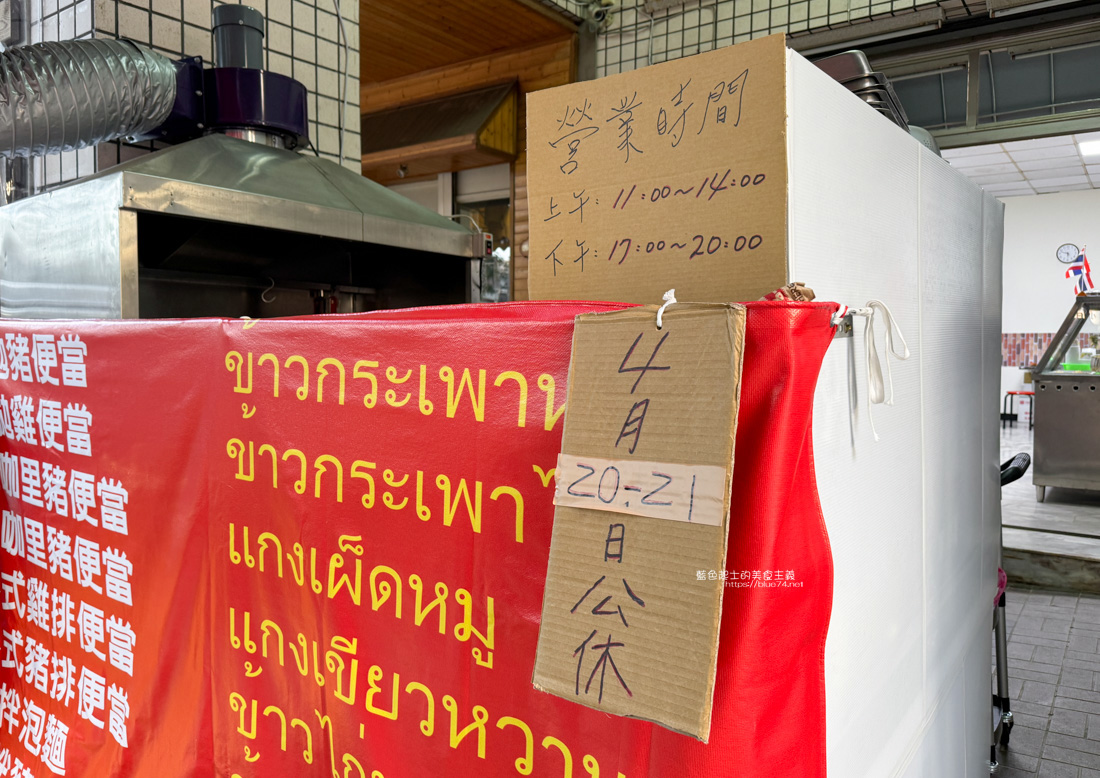 營業時間
上午：11:00~14:00
下午：17:00~20:00
4月
20.-21
日公休
豬便當
雞便當
咖里豬便當
咖里豬便當
式雞排便當
式豬排便當
拌泡麵
ข้าวกระเพาห
ข้าวกระเพาไ
แกงเผ็ดหมู
แกงเขียวหวาน
ข้าวไก่
藍色起士的美食主義
https://blue74.net